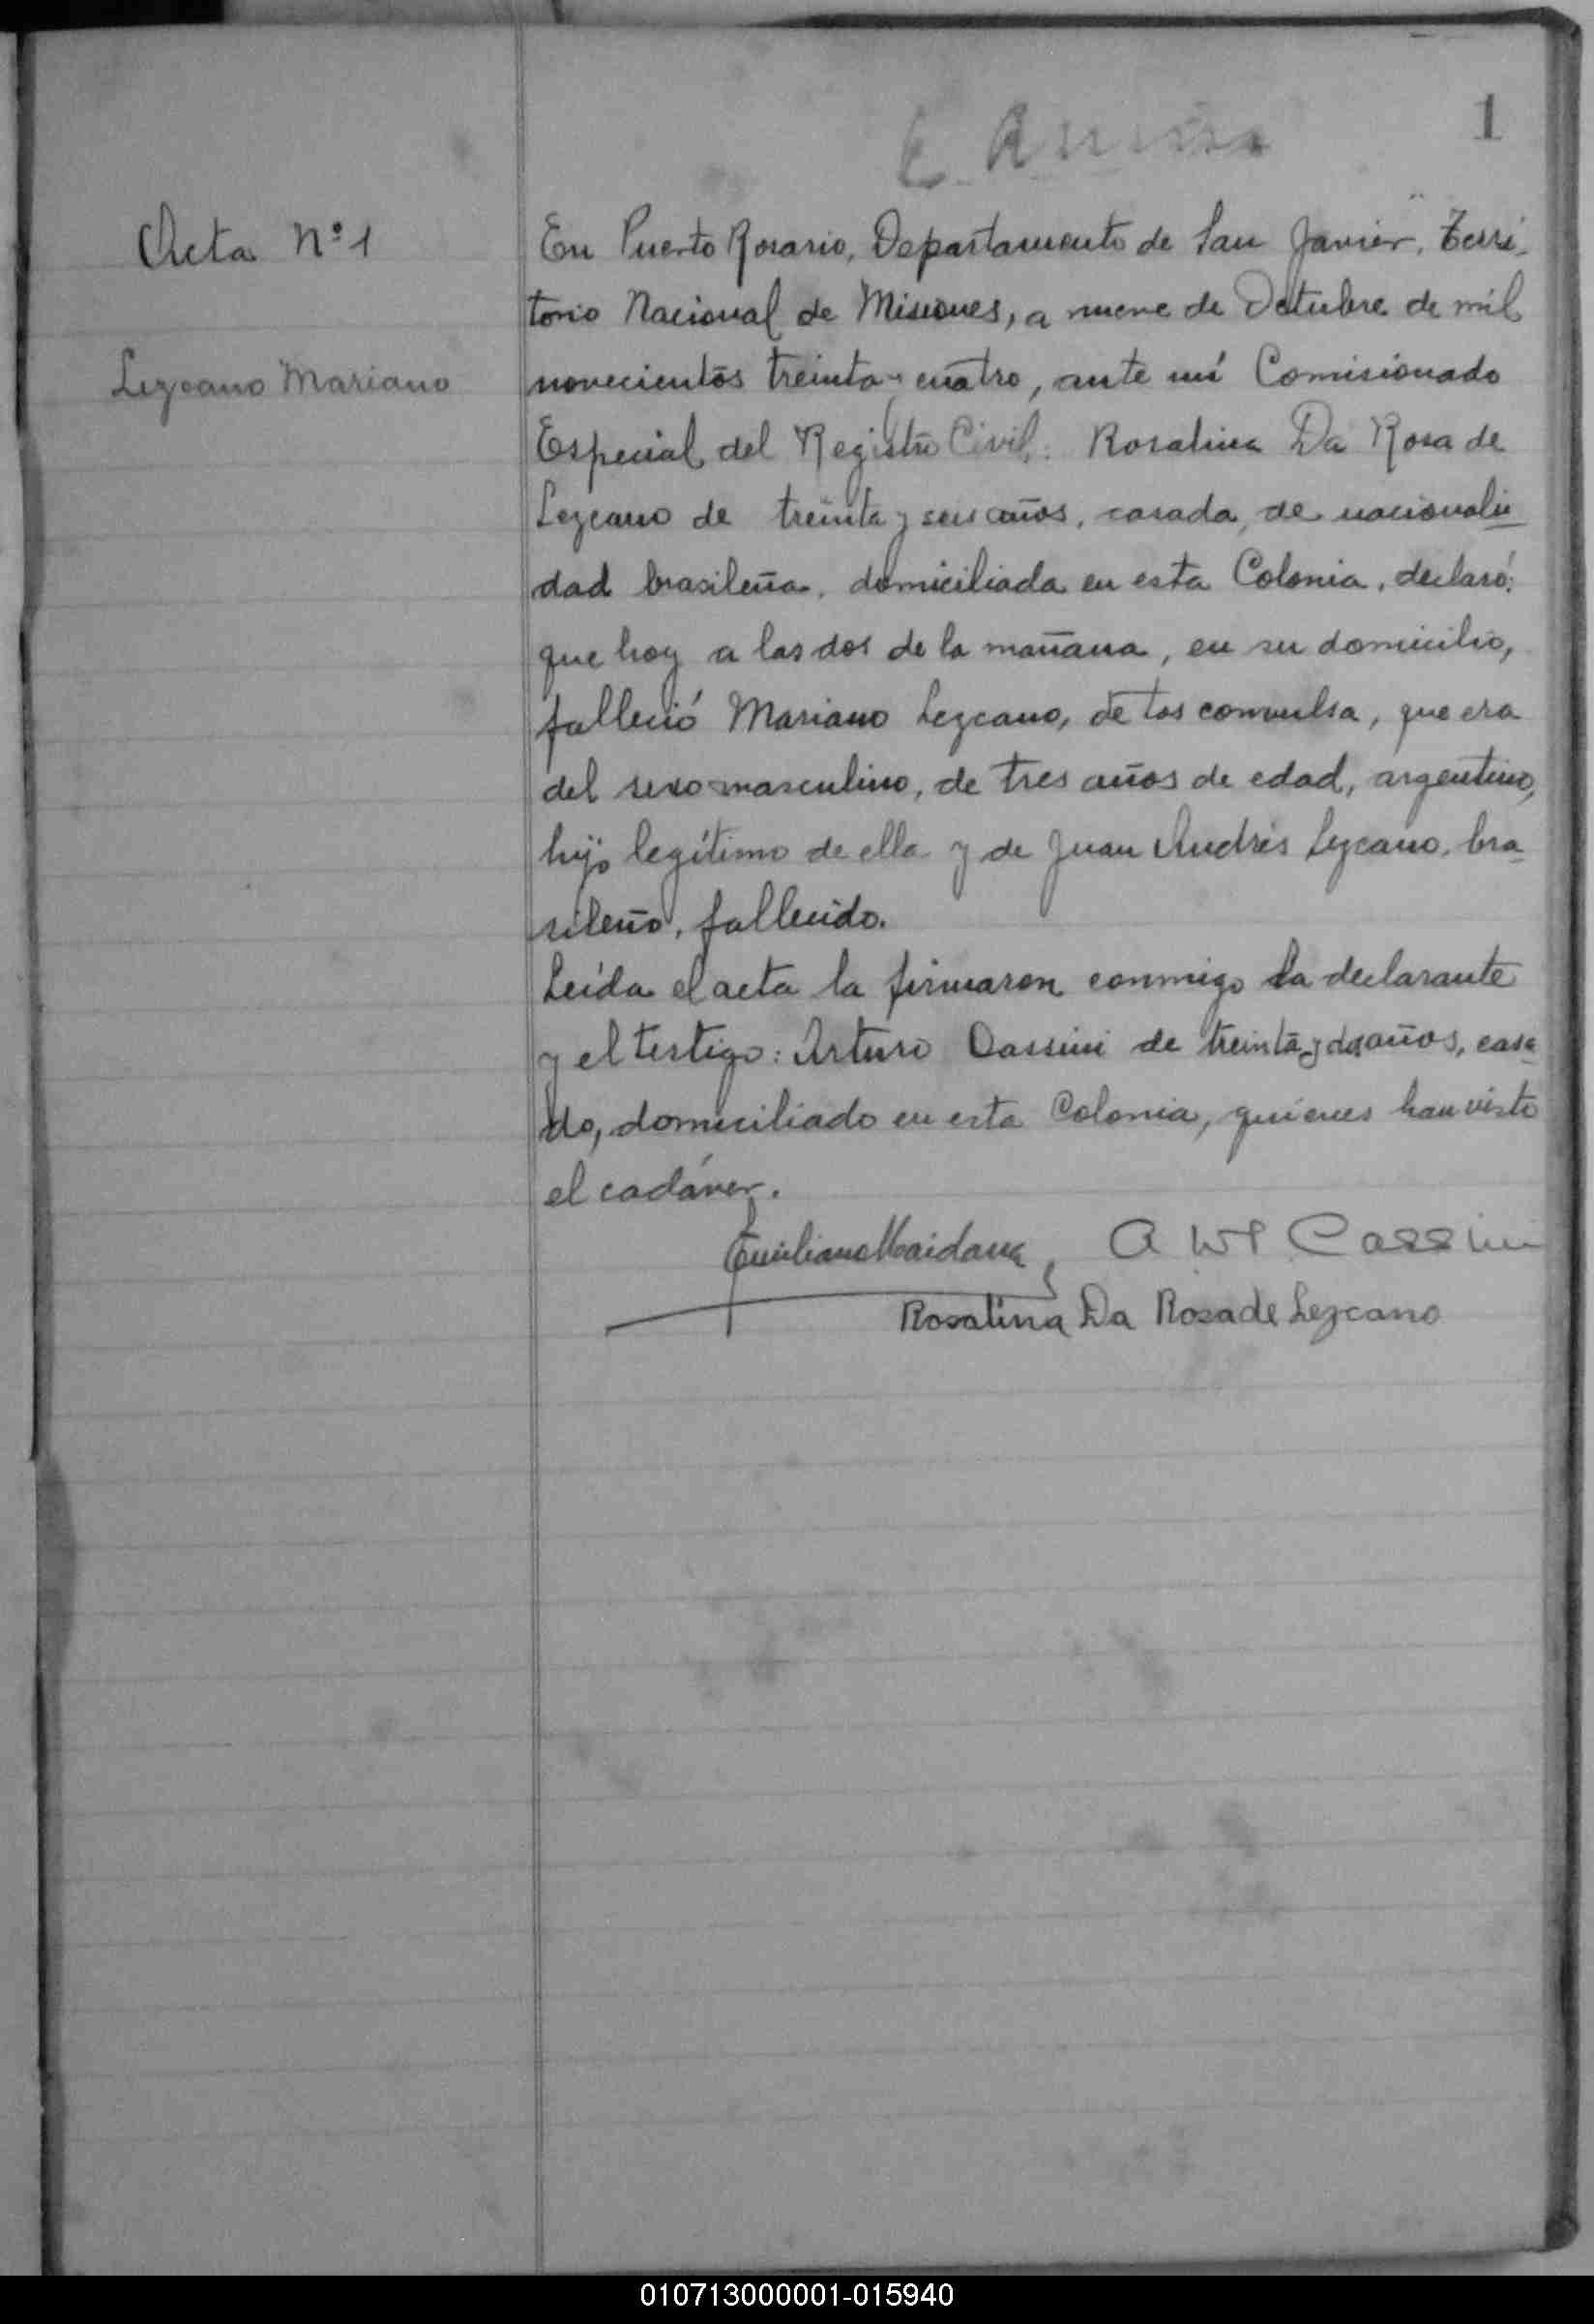 1
Acta Nº 1
Lezcano Mariano
En Puerto Rosario, Departamento de San Javier, Terri-
torio Nacional de Misiones, a nueve de Octubre de mil
novecientos treinta y cuatro, ante mí Comisionado
Especial del Registro Civil: Rosalina Da Rosa de
Lezcano de treinta y seis años, casada, de nacionali-
dad brasileña, domiciliada en esta Colonia, declaró:
que hoy a las dos de la mañana, en su domicilio,
falleció Mariano Lezcano, de tos convulsa, que era
del sexo masculino, de tres años de edad, argentino,
hijo legítimo de ella y de Juan Andrés Lezcano, bra-
sileño, fallecido.
Leída el acta la firmaron conmigo la declarante
y el testigo: Arturo Cassini de treinta y dos años, casa-
do, domiciliado en esta Colonia, quienes han visto
el cadáver.
Emiliano Maidana, A Cassini
Rosalina Da Rosa de Lezcano
010713000001-015940